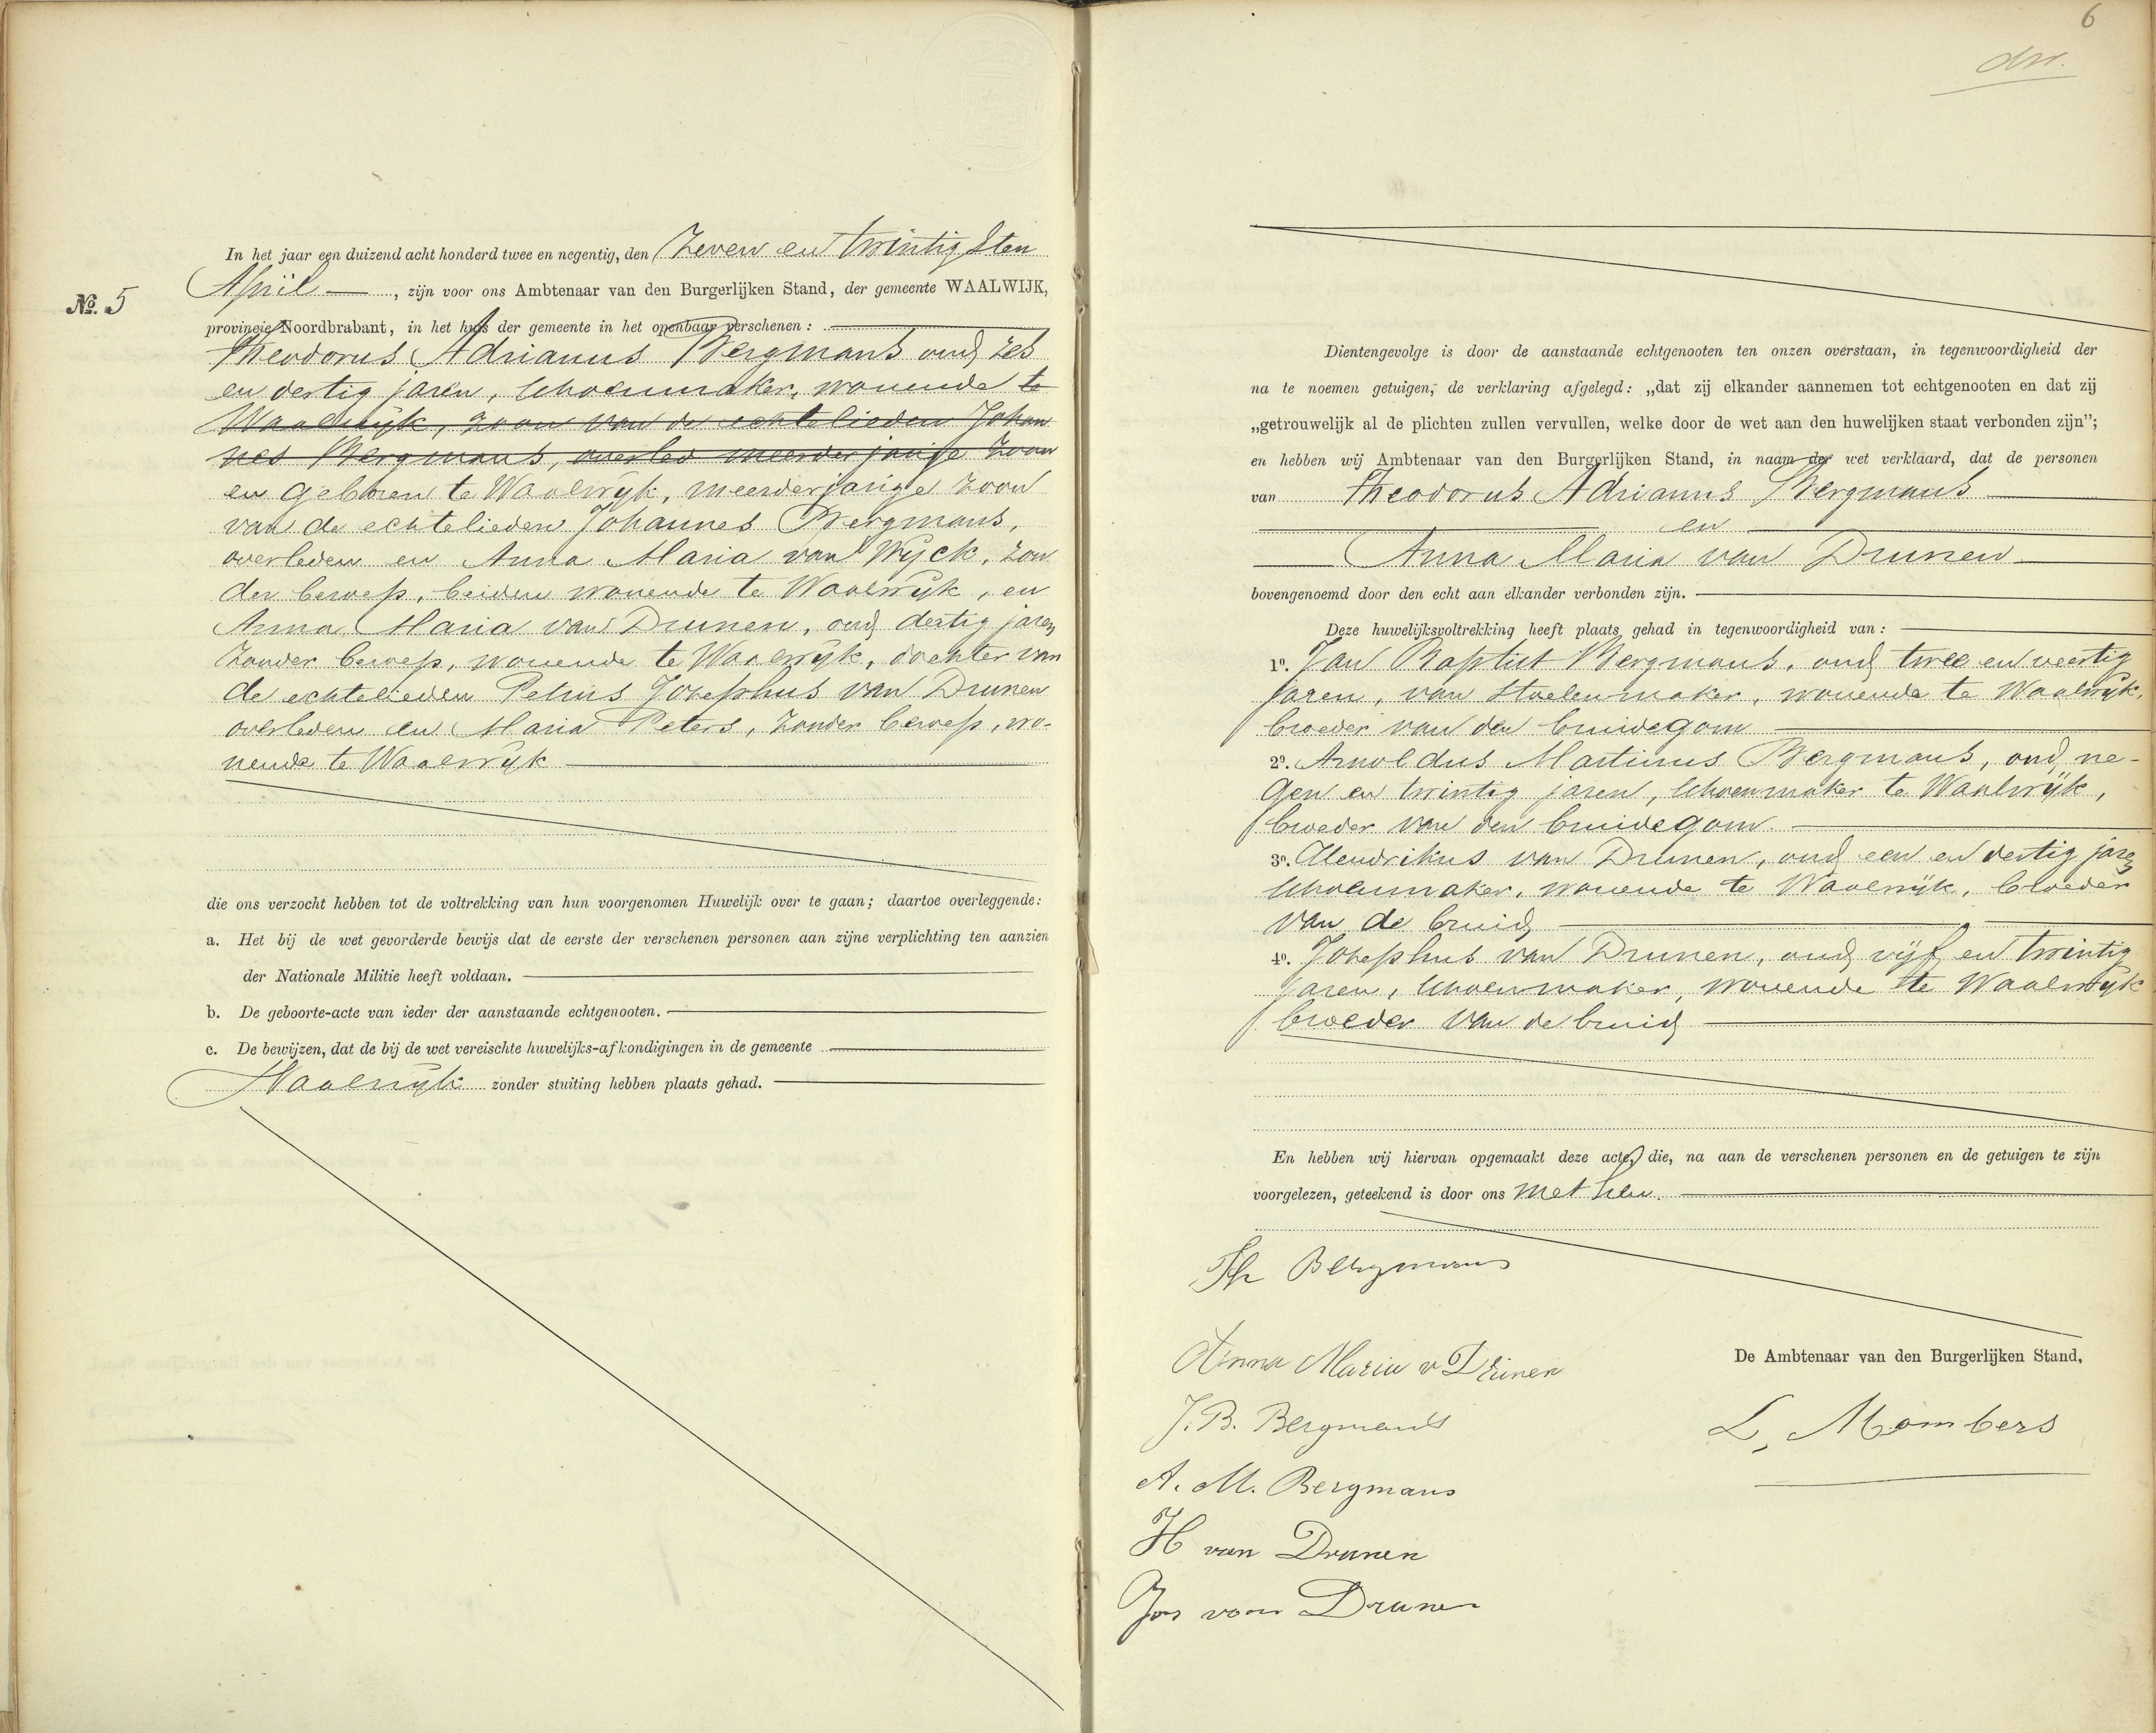 No. 5
In het jaar een duizend acht honderd twee en negentig, den Zeven en twintigsten
April, zijn voor ons Ambtenaar van den Burgerlijken Stand, der gemeente WAALWIJK,
provincie Noordbrabant, in het huis der gemeente in het openbaar verschenen:
Theodorus Adrianus Bergmans oud zes
en dertig jaren, schoenmaker, wonende te
Waalwijk, zoon van de echtelieden Johan
nes Bergmans, overled meerderjarige zoon
en geboren te Waalwijk, meerderjarige zoon
van de echtelieden Johannes Bergmans,
overleden en Anna Maria van Wyck, zon
der beroep, beiden wonende te Waalwijk, en
Anna Maria van Drunen, oud dertig jaren
zonder beroep, wonende te Waalwijk, dochter van
de echtelieden Petrus Josephus van Drunen
overleden en Maria Peters, zonder beroep, wo-
nende te Waalwijk
die ons verzocht hebben tot de voltrekking van hun voorgenomen Huwelijk over te gaan; daartoe overleggende:
a. Het bij de wet gevorderde bewijs dat de eerste der verschenen personen aan zijne verplichting ten aanzien
der Nationale Militie heeft voldaan.
b. De geboorte-acte van ieder der aanstaande echtgenooten.
c. De bewijzen, dat de bij de wet vereischte huwelijks-afkondigingen in de gemeente
Waalwijk zonder stuiting hebben plaats gehad.
6
Dientengevolge is door de aanstaande echtgenooten ten onzen overstaan, in tegenwoordigheid der
na te noemen getuigen, de verklaring afgelegd: „dat zij elkander aannemen tot echtgenooten en dat zij
„getrouwelijk al de plichten zullen vervullen, welke door de wet aan den huwelijken staat verbonden zijn";
en hebben wij Ambtenaar van den Burgerlijken Stand, in naam der wet verklaard, dat de personen
van Theodorus Adrianus Bergmans
en
Anna Maria van Drunen
bovengenoemd door den echt aan elkander verbonden zijn.
Deze huwelijksvoltrekking heeft plaats gehad in tegenwoordigheid van:
1o. Jan Baptist Bergmans, oud twee en veertig
jaren, van stoelenmaker, wonende te Waalwijk,
broeder van den bruidegom
2o. Arnoldus Martinus Bergmans, oud ne-
gen en twintig jaren, schoenmaker te Waalwijk,
broeder van den bruidegom.
3o. Hendrikus van Drunen, oud een en dertig jaren
schoenmaker, wonende te Waalwijk, broeder
van de bruid
4o. Josephus van Drunen, oud vijf en twintig
jaren, schoenmaker, wonende te Waalwijk
broeder van de bruid
En hebben wij hiervan opgemaakt deze acte, die, na aan de verschenen personen en de getuigen te zijn
voorgelezen, geteekend is door ons met hen.
Th Bergmans
Anna Maria v Drunen
De Ambtenaar van den Burgerlijken Stand,
J. B. Bergmans
L. Mombers
A. M. Bergmans
H van Drunen
Jos van Drunen